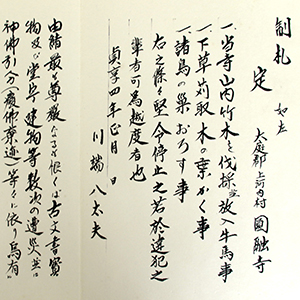 制札
定 如左
大庭郡上河内村 圓融寺
一、当寺山内竹木を伐採并放入牛馬事
一、下草苅取木の葉かく事
一、諸鳥の巣おろす事
右之條々堅令停止之若於違犯之
輩者可為越度者也
貞享四年正月 日
川端八太夫
由緒最も尊厳なるも恨くは古文書寳
物及び堂宇建物等数次の遭災并に
神佛引分(廃佛棄迹)等々に依り烏有に